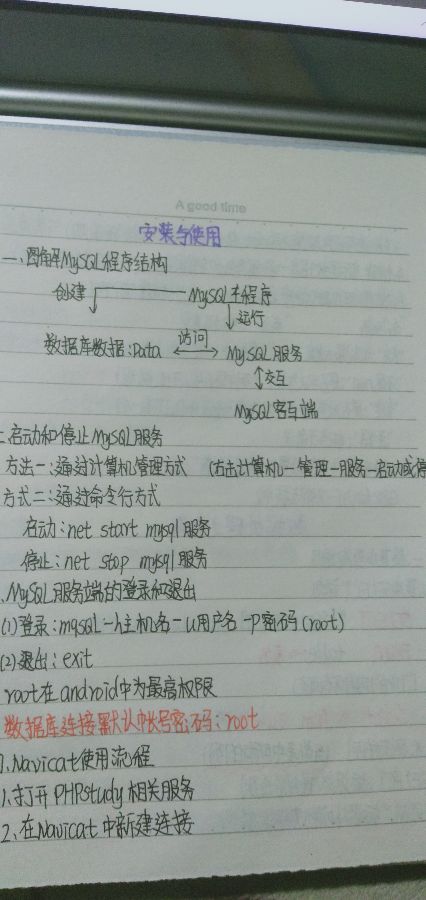 A good time
安装与使用
一、图解MySQL程序结构
创建 MySQL主程序
运行
数据库数据:Data 访问 MySQL服务
交互
MySQL客互端
二.启动和停止MySQL服务
方法一:通过计算机管理方式 (右击计算机一管理一服务一启动或停
方式二:通过命令行方式
启动:net start mysql服务
停止:net stop mysql服务
.MySQL服务端的登录和退出
(1)登录:mqsQL-h主机名-u用户名-P密码(root)
(2)退出:exit
root在android中为最高权限
数据库连接默认帐号密码:root
.Navicat使用流程
1.打开PHPstudy相关服务
2、在Navicat中新建连接